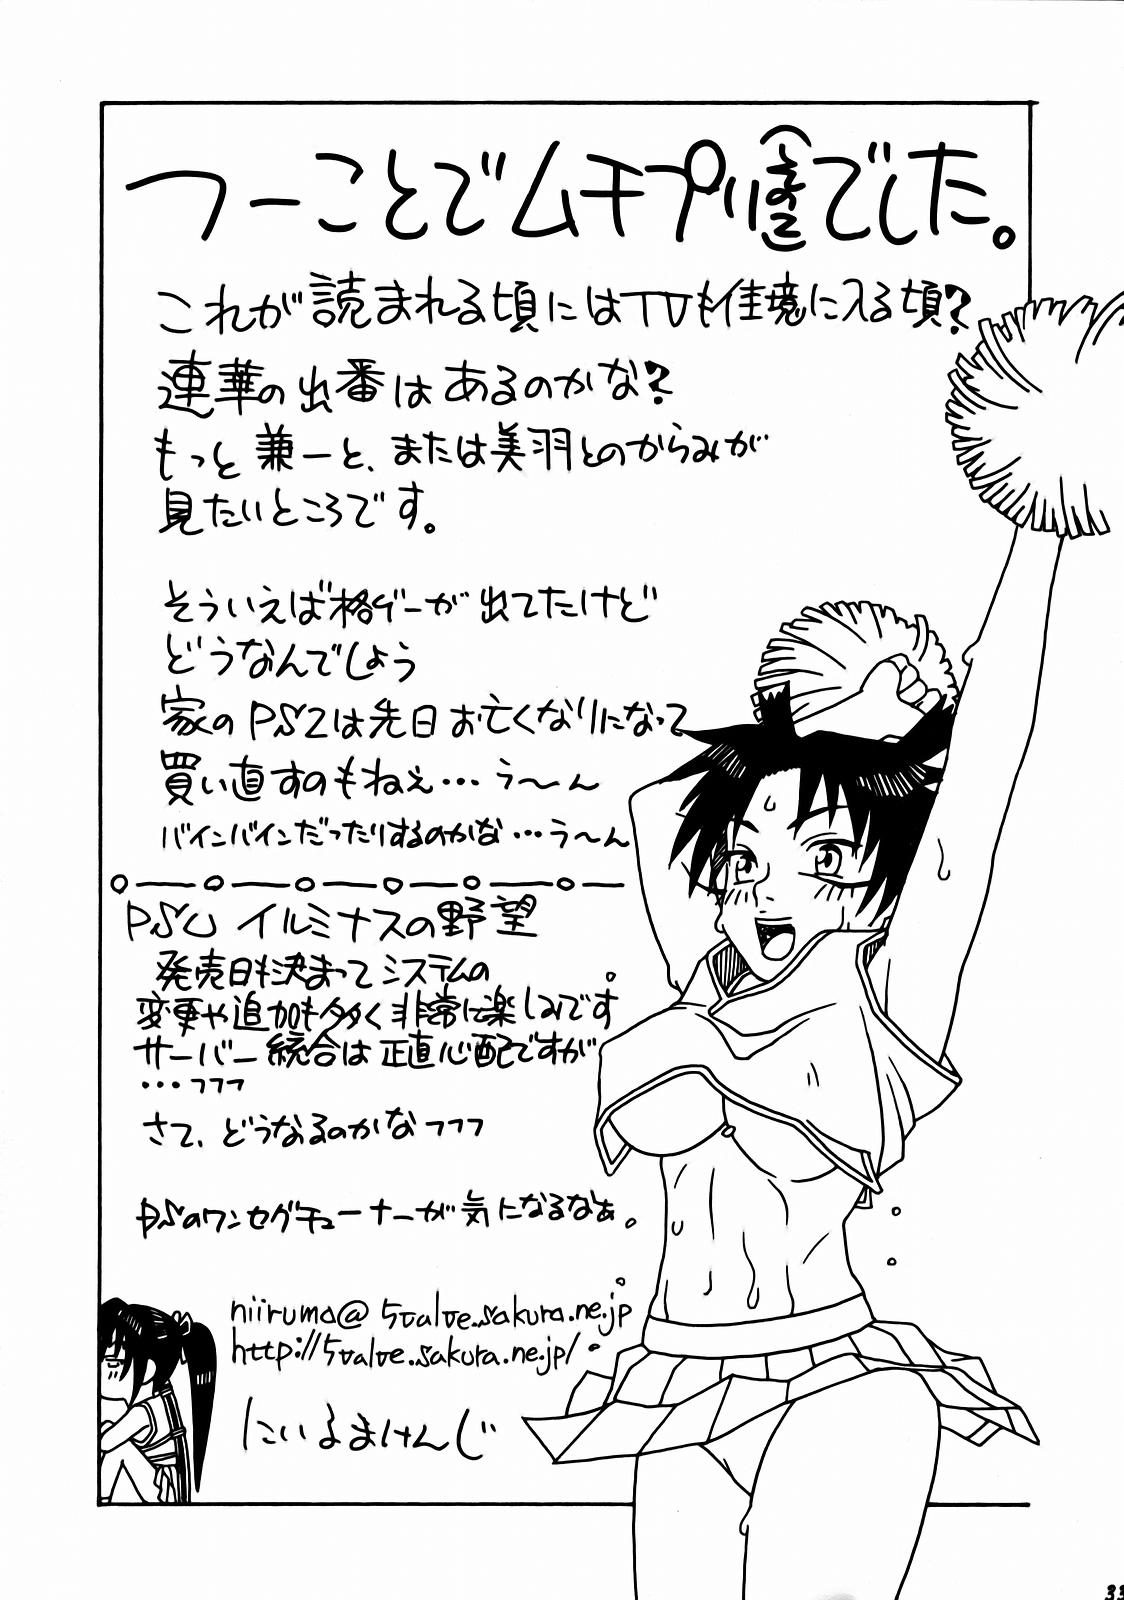 つーことでムチプリ でした。
これが読まれる頃にはTVも佳境に入る頃?
連華の出番はあるのかな?
もっと兼一と、または美羽とのからみが
見たいところです。
そういえば格ゲーが出てたけど
どうなんでしょう
家のPS2は先日お亡くなりになって
買い直すのもねぇ…う〜ん
バインバインだったりするのかな…う〜ん
PSU イルミナスの野望
発売日も決まってシステムの
変更や追加も多々く非常に楽しみです
サーバー統合は正直心配ですが
…フフフ
さて、どうなるのかなフフフ
PSのワンセグチューナーが気になるなぁ。
niiruma@5valve.sakura.ne.jp
http://5valve.sakura.ne.jp/
にいるまけんじ
33